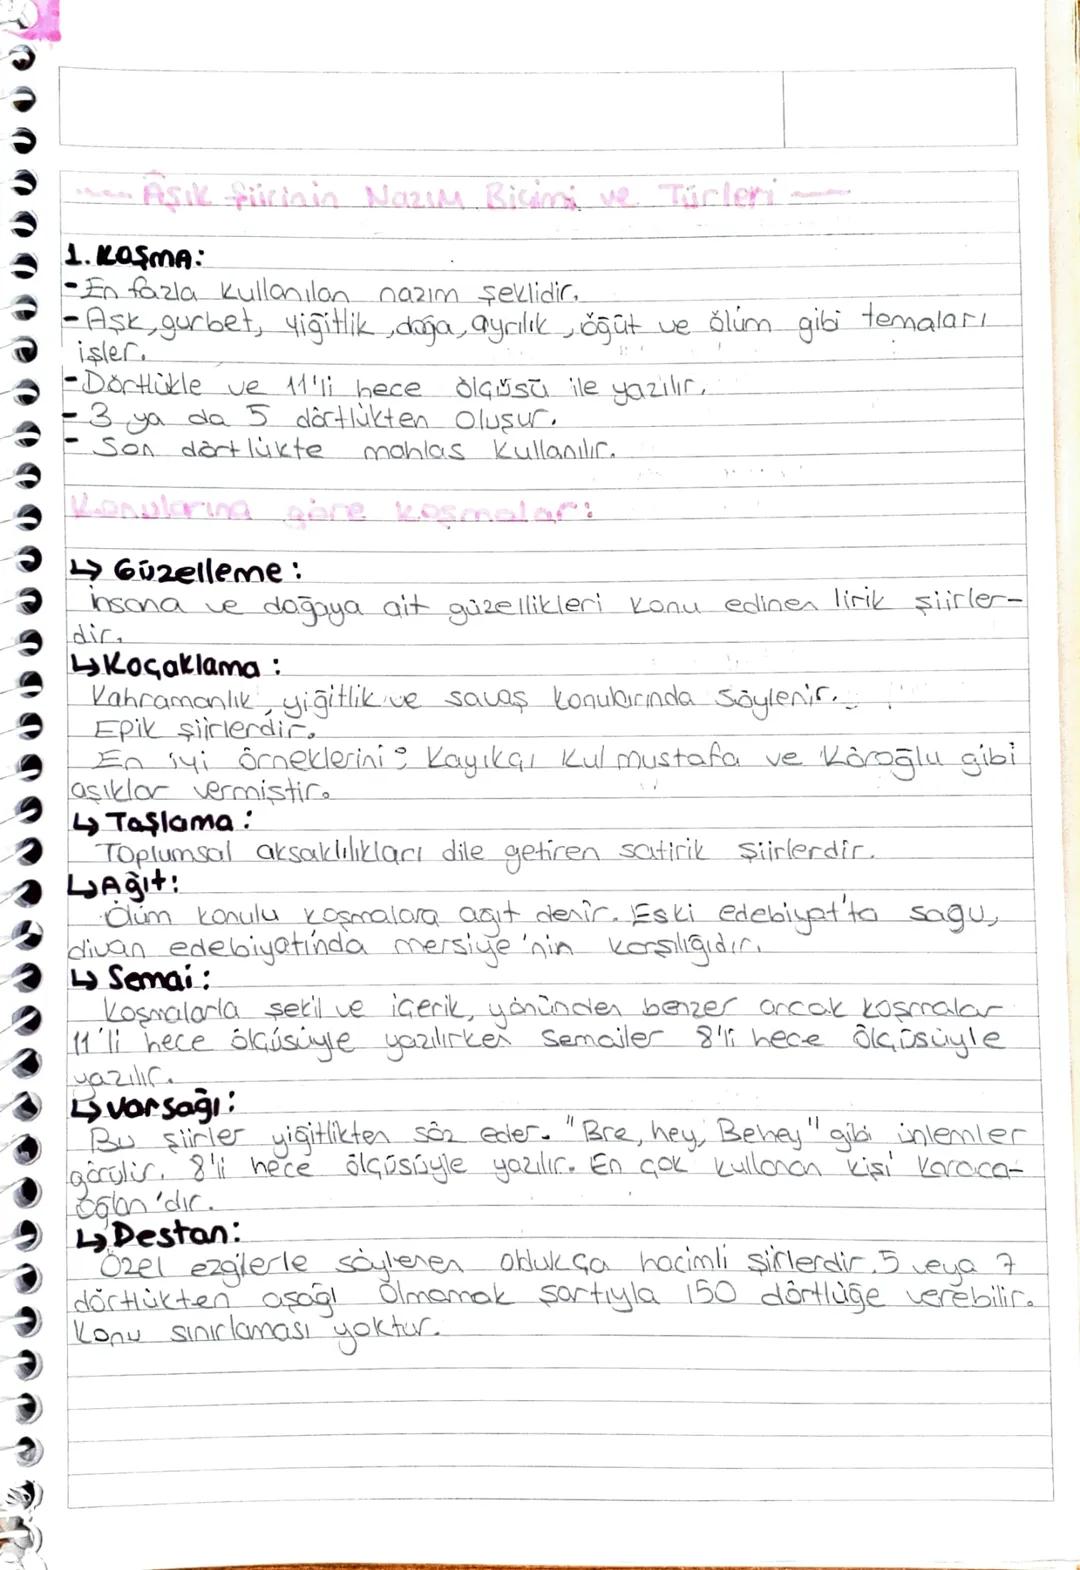 Aşık Şiirinin Nazım Biçimi ve Türleri
1. KOŞMA:
- En fazla kullanılan nazım şeklidir.
- Aşk, gurbet, yiğitlik, doğa, ayrılık, öğüt ve ölüm gibi temaları
işler.
- Dörtlükle ve 11'li hece ölçüsü ile yazılır.
- 3 ya da 5 dörtlükten oluşur.
- Son dörtlükte mahlas kullanılır.
Konularına göre koşmalar:
↳ Güzelleme:
İnsana ve doğaya ait güzellikleri konu edinen lirik şiirler-
dir.
↳ Koçaklama:
Kahramanlık, yiğitlik ve savaş konularında söylenir.
Epik şiirlerdir.
En iyi örneklerini; Kayıkçı Kul mustafa ve Köroğlu gibi
aşıklar vermiştir.
↳ Taşlama:
Toplumsal aksaklılıkları dile getiren satirik şiirlerdir.
↳ Ağıt:
Ölüm konulu koşmalara ağıt denir. Eski edebiyat'ta sagu,
divan edebiyatında mersiye'nin karşılığıdır.
↳ Semai:
Koşmalarla şekil ve içerik, yönünden benzer ancak koşmalar
11'li hece ölçüsüyle yazılırken semailer 8'li hece ölçüsüyle
yazılır.
↳ varsağı:
Bu şiirler yiğitlikten söz eder. "Bre, hey, Behey" gibi ünlemler
görülür. 8'li hece ölçüsüyle yazılır. En çok kullanan kişi Karaca-
oğlan'dır.
↳ Destan:
Özel ezgilerle söylenen oldukça hacimli şiirlerdir. 5 veya 7
dörtlükten aşağı olmamak şartıyla 150 dörtlüğe verebilir.
Konu sınırlaması yoktur.